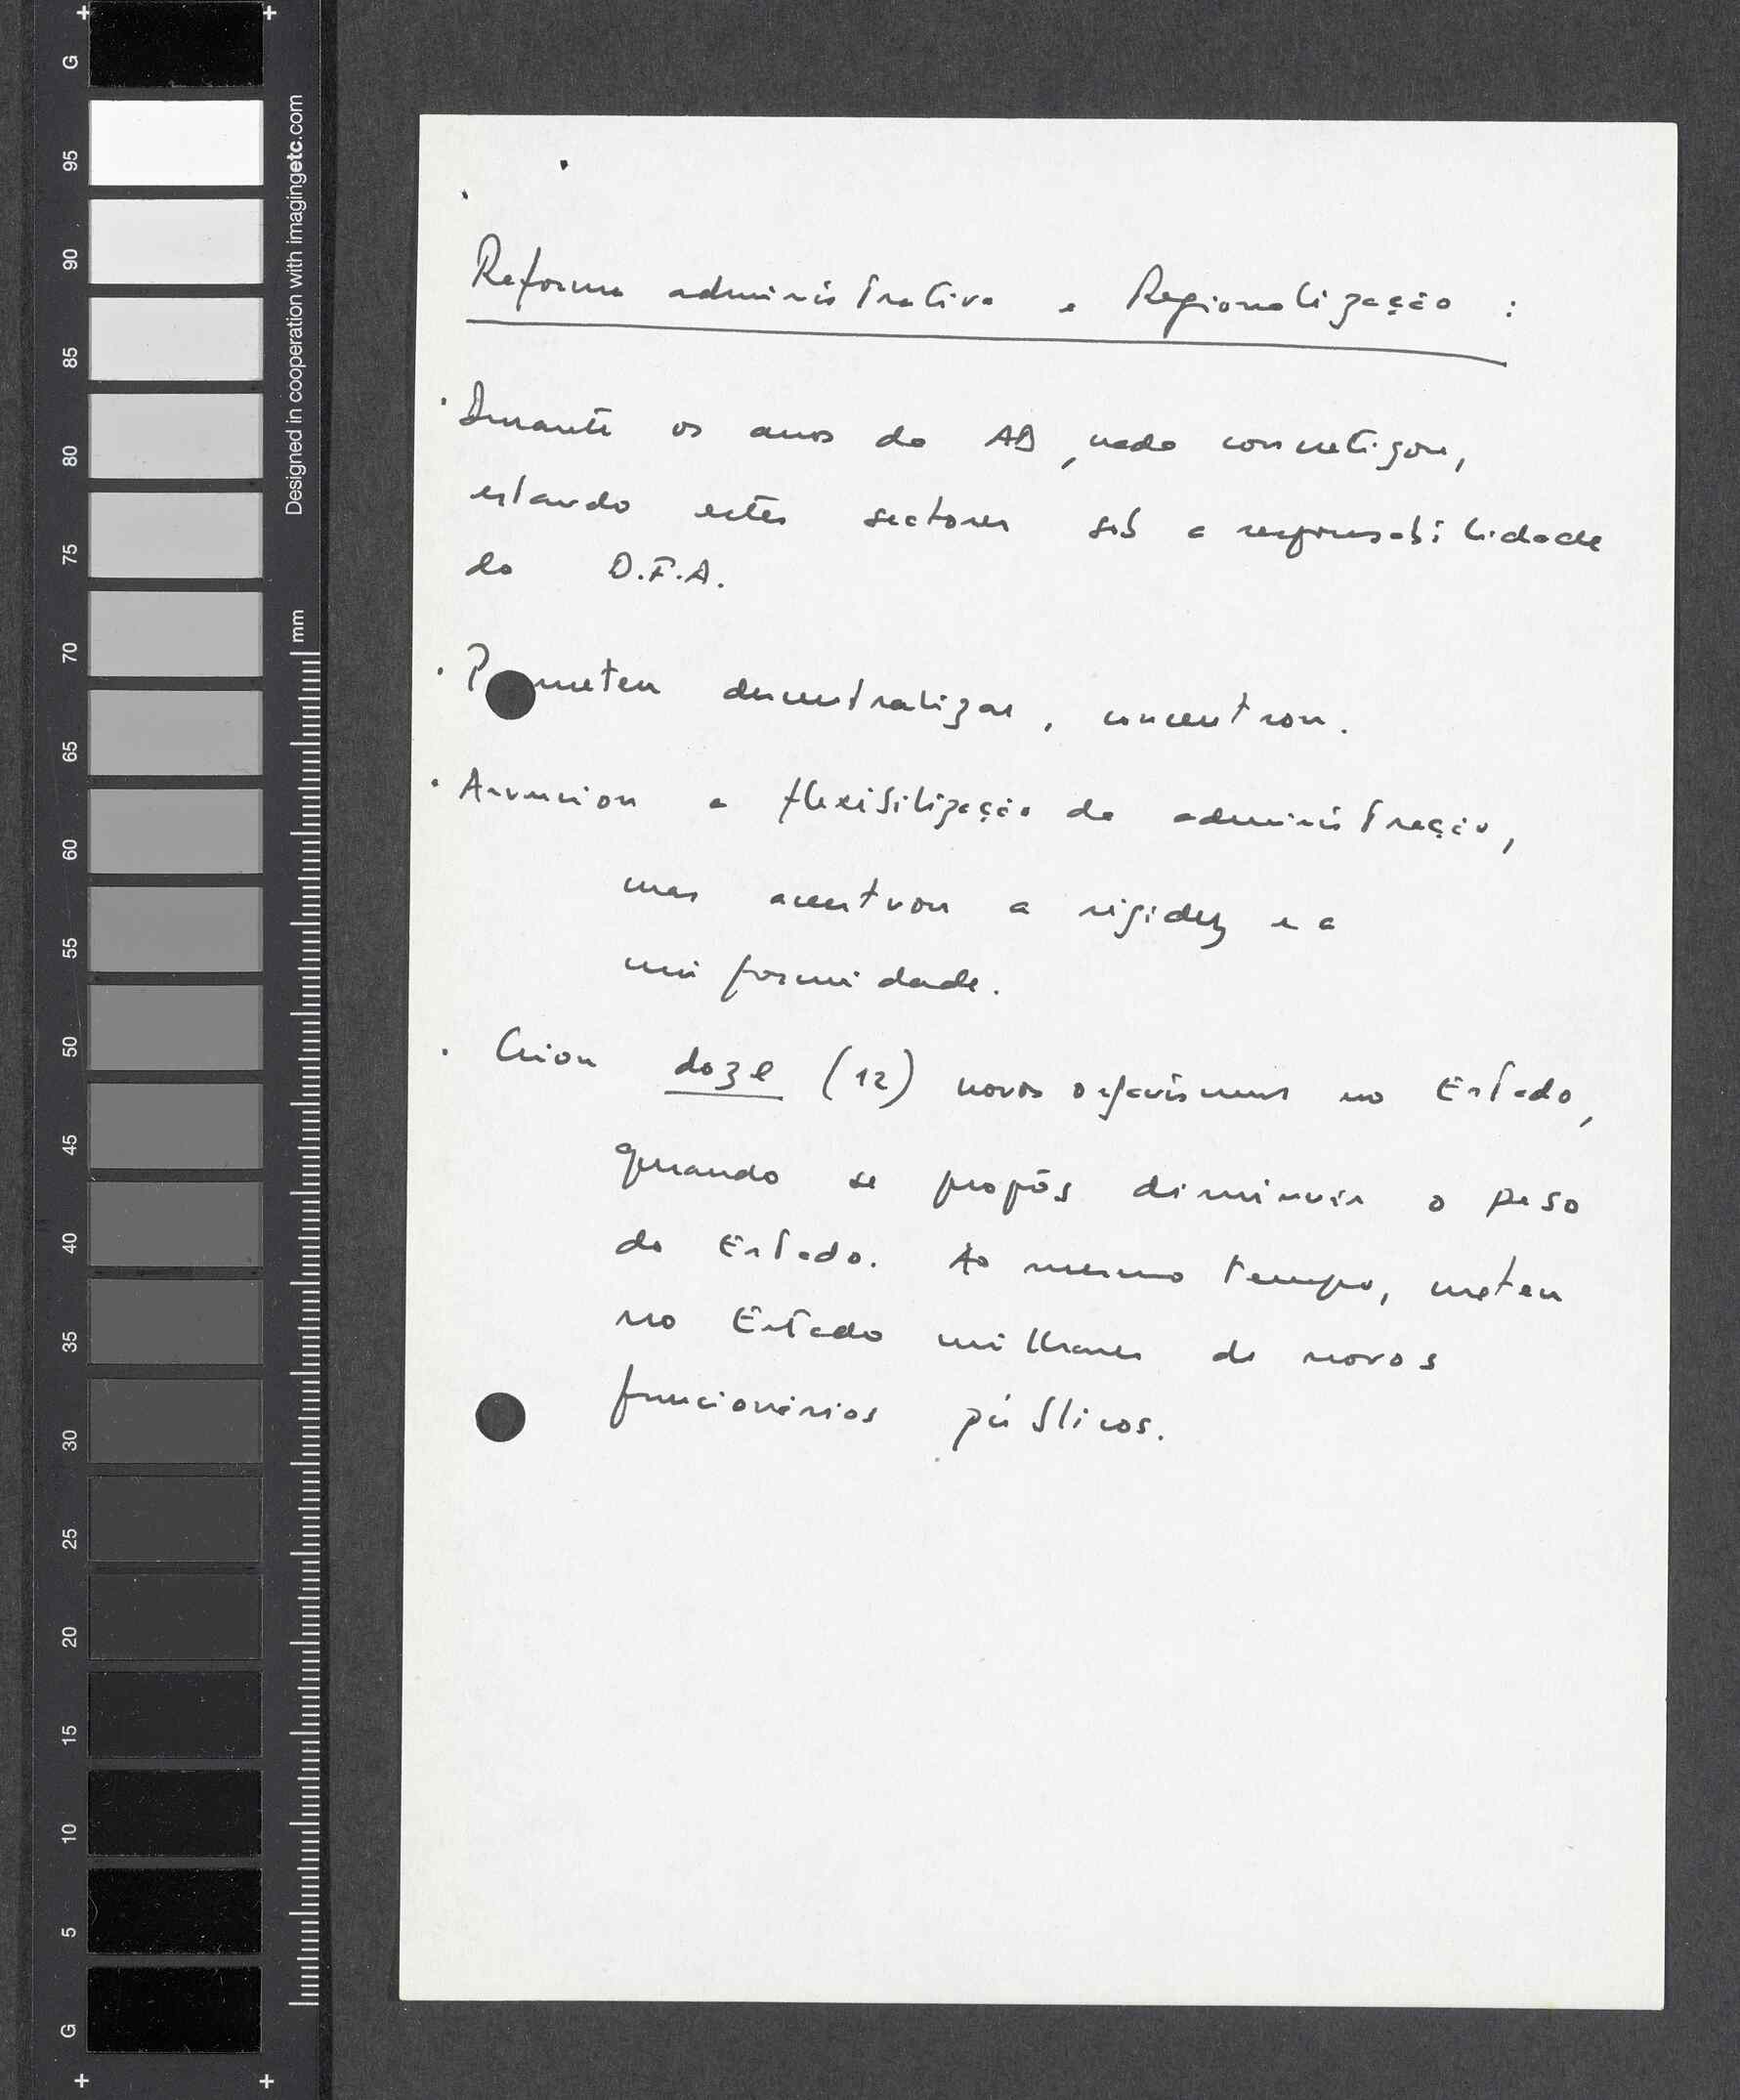 G
95
90
85
80
75
70
65
60
55
50
45
40
35
30
25
20
15
10
5
G
Designed in cooperation with imagingetc.com
mm
Reforma administrativa e Regionalização :
· Durante os anos da AD, nada concretizou,
estando estes sectores sob a responsabilidade
do D.F.A.
· P meteu descentralizar, concentrou.
· Anunciou a flexibilização da administração,
mas acentuou a rigidez e a
uniformidade.
· Criou doze (12) novos organismos no Estado,
quando se propôs diminuir o peso
do Estado. Ao mesmo tempo, meteu
no Estado milhares de novos
funcionários públicos.